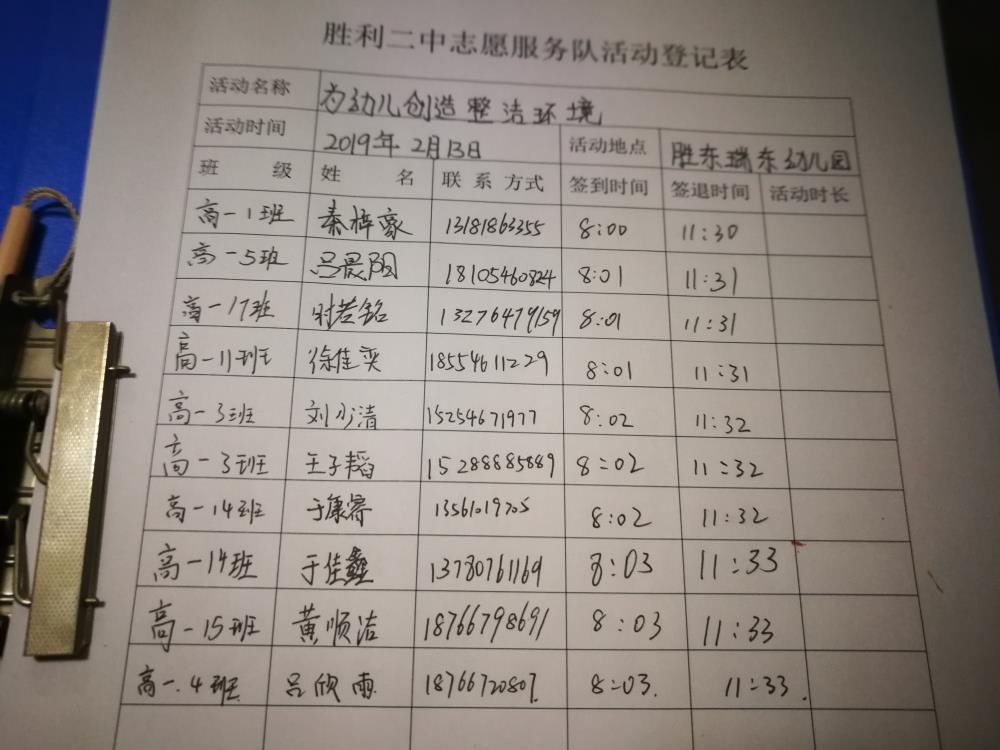 胜利二中志愿服务队活动登记表
活动名称 为幼儿创造整洁环境
活动时间 2019年2月13日 活动地点 胜东瑞东幼儿园
班 级 姓 名 联系方式 签到时间 签退时间 活动时长
高一1班 秦梓豪 13181863355 8:00 11:30
高一5班 吕晨阳 18105460824 8:01 11:31
高一17班 时若铭 13276479159 8:01 11:31
高一11班 徐佳奕 18554611229 8:01 11:31
高一3班 刘少清 15254671977 8:02 11:32
高一3班 王子韬 15288885889 8:02 11:32
高一14班 于康睿 13561019705 8:02 11:32
高一14班 于佳鑫 13780761169 8:03 11:33
高一15班 黄顺洁 18766798691 8:03 11:33
高一.4班 吕欣雨 18766720807. 8:03. 11:33.